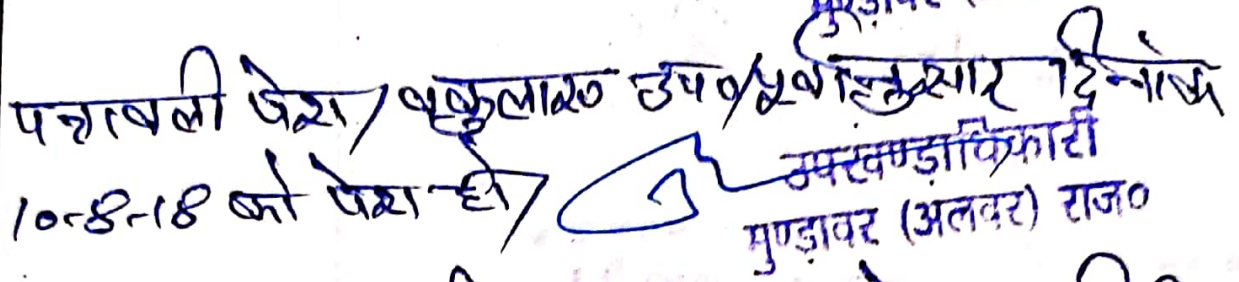 पत्रावली पेश/ वकुलाय उप०/ पूर्वानुसार दिनांक
10-8-18 को पेश हो/
उपखण्डाधिकारी
मुण्डावर (अलवर) राज०